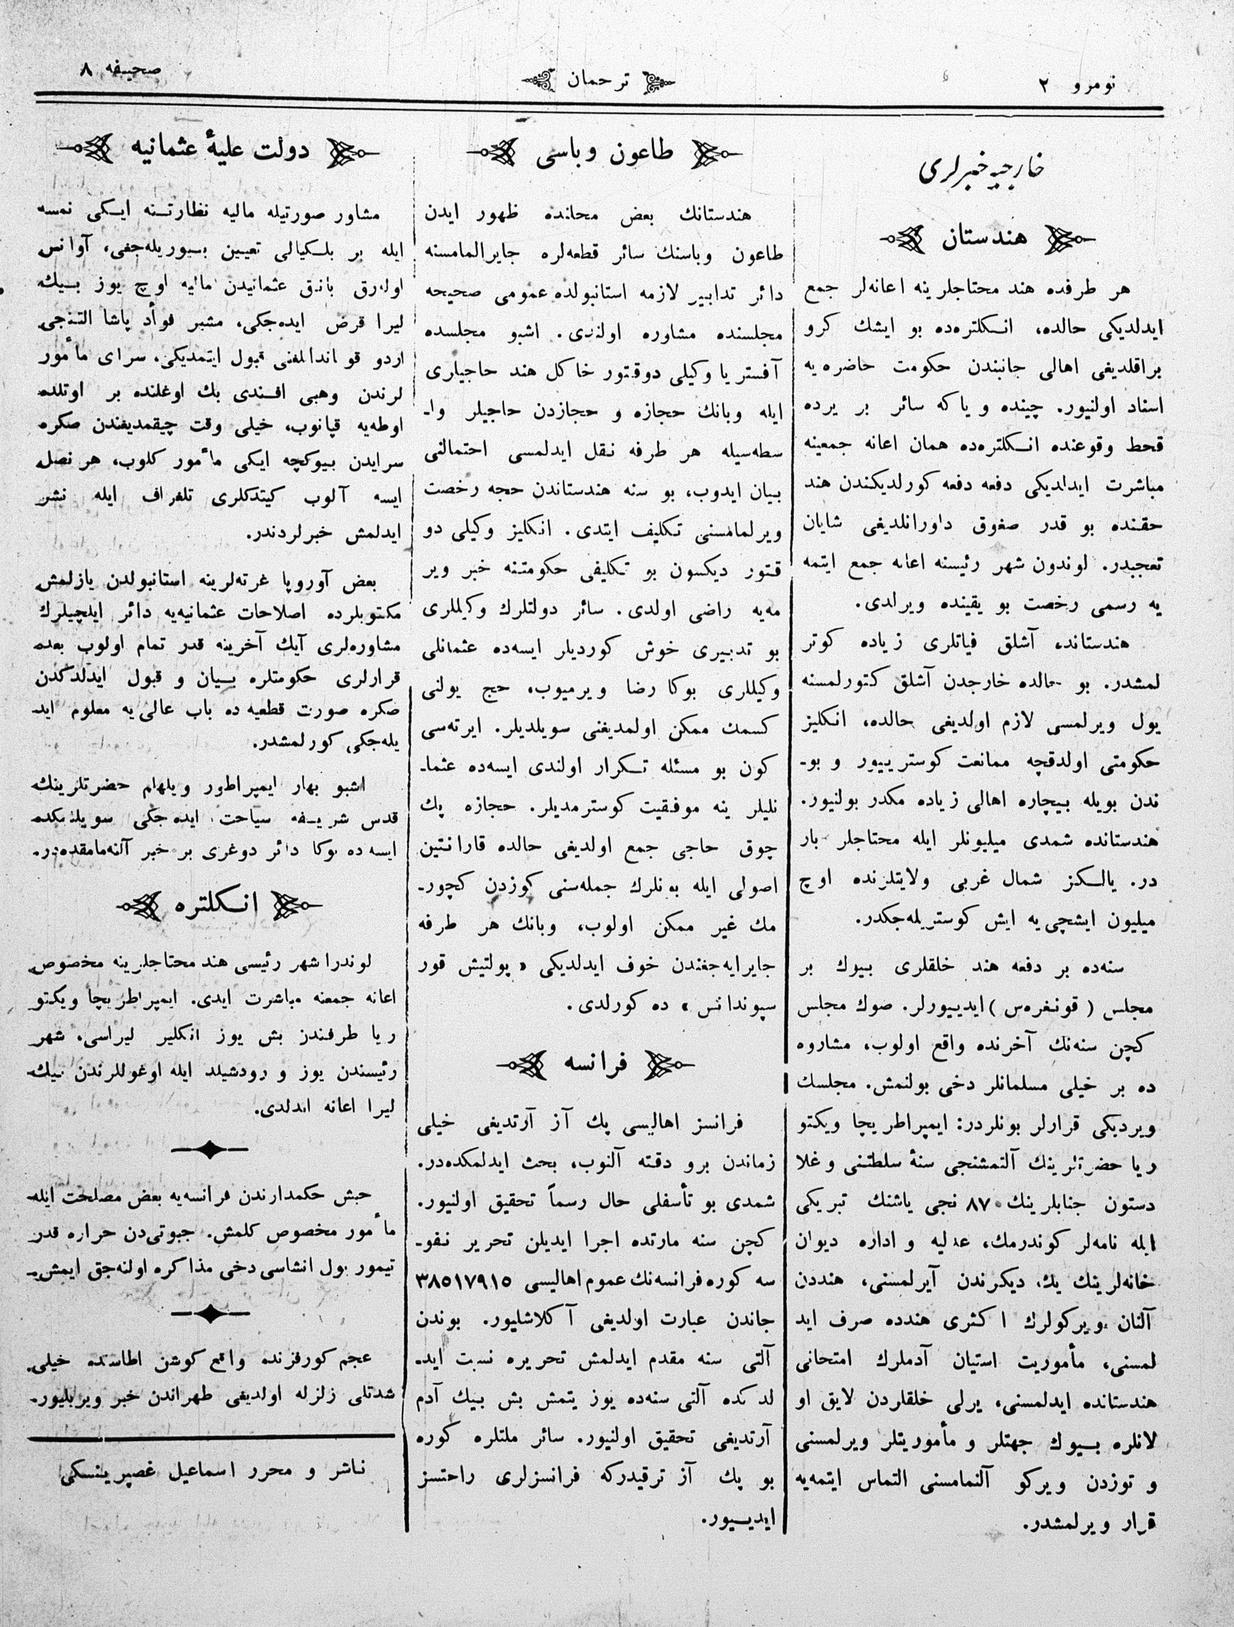 نومرو ٢
ترجمان
صحيفه ٨
خارجيه خبرلرى
هندستان
هر طرفده هند محتاجلرينه اعانه‌لر جمع
ايدلديكى حالده، انكلتره‌ده بو ايشك كرو
براقلديغى اهالى جانبندن حكومت حاضره‌يه
اسناد اولنيور. چينده و ياكه سائر بر يرده
قحط وقوعنده انكلتره‌ده همان اعانه جمعينه
مباشرت ايدلديكى دفعه دفعه كورلديكندن هند
حقنده بو قدر صغوق داورانلديغى شايان
تعجبدر. لوندون شهر رئيسنه اعانه جمع ايتمه
يه رسمى رخصت بو يقينده ويرلدى.
هندستانده آشلق فياتلرى زياده كوتر
لمشدر. بو حالده خارجدن آشلق كتورلمسنه
يول ويرلمسى لازم اولديغى حالده، انكليز
حكومتى اولدقچه ممانعت كوستريیور و بو-
ندن بويله بيچاره اهالى زياده مكدر بولنيور.
هندستانده شمدى ميليونلر ايله محتاجلر بار
در. يالكز شمال غربى ولايتلرنده اوچ
ميليون ايشچى‌يه ايش كوستريله‌جكدر.
سنه‌ده بر دفعه هند خلقلرى بيوك بر
مجلس (قونغره‌س) ايديیورلر. صوك مجلس
كچن سنه‌نك آخرنده واقع اولوب، مشاروه
ده بر خيلى مسلمانلر دخى بولنمش. مجلسك
ويرديكى قرارلر بونلردر: ايمپراطريچا ويكتو
ريا حضرتلرينك آلتمشنجى سنهٔ سلطنتى و غلا
دستون جنابلرينك ٨٧ نجى ياشنك تبريكى
ايله نامه‌لر كوندرمك، عدليه و اداره ديوان
خانه‌لرينك يك ديكرندن آيرلمسنى، هنددن
آلنان ويركولرك اكثرى هندده صرف ايد
لمسنى، مأموريت استيان آدملرك امتحانى
هندستانده ايدلمسنى، يرلى خلقلردن لايق او
لانلره بيوك جهتلر و مأموريتلر ويرلمسنى
و توزدن ويركو آلنمامسنى التماس ايتمه‌يه
قرار ويرلمشدر.
طاعون وباسى
هندستانك بعض محلنده ظهور ايدن
طاعون وباسنك سائر قطعه‌لره جايرالمامسنه
دائر تدابير لازمه استانبولده عمومى صحيحه
مجلسنده مشاوره اولندى. اشبو مجلسده
آفستريا وكيلى دوقتور خاكل هند حاجيلرى
ايله وبانك حجازه و حجازدن حاجيلر وا-
سطه‌سيله هر طرفه نقل ايدلمسى احتمالنى
بيان ايدوب، بو سنه هندستاندن حجه رخصت
ويرلمامسنى تكليف ايتدى. انكليز وكيلى دو
قتور ديكسون بو تكليفى حكومتنه خبر وير
مه‌يه راضى اولدى. سائر دولتلرك وكيللرى
بو تدبيرى خوش كورديلر ايسه‌ده عثمانلى
وكيللرى بوكا رضا ويرميوب، حج يولنى
كسمك ممكن اولمديغنى سويلديلر. ايرته‌سى
كون بو مسئله تكرار اولندى ايسه‌ده عثما-
نليلر ينه موفقيت كوسترمديلر. حجازه پك
چوق حاجى جمع اولديغى حالده قارانتين
اصولى ايله بونلرك جمله‌سنى كوزدن كچور-
مك غير ممكن اولوب، وبانك هر طرفه
جايرايه‌جغندن خوف ايدلديكى «پولتيش قور
سپوندانس» ده كورلدى.
فرانسه
فرانسز اهاليسى پك آز آرتديغى خيلى
زماندن برو دقته آلنوب، بحث ايدلمكده‌در.
شمدى بو تأسفلى حال رسماً تحقيق اولنيور.
كچن سنه مارتده اجرا ايديلن تحرير نفو-
سه كوره فرانسه‌نك عموم اهاليسى ٣٨٥١٧٩١٥
جاندن عبارت اولديغى آكلاشليور. بوندن
آلتى سنه مقدم ايدلمش تحريره نسبت ايد-
لدكده آلتى سنه‌ده يوز يتمش بش بيك آدم
آرتديغى تحقيق اولنيور. سائر ملتلره كوره
بو پك آز ترقيدركه فرانسزلرى راحتسز
ايديیور.
دولت عليهٔ عثمانيه
مشاور صورتيله ماليه نظارتنه ايكى نمسه
ايله بر بلكيالى تعيين بيوريله‌جغى، آوانس
اوله‌رق بانق عثمانيدن ماليه اوچ يوز بيك
ليرا قرض ايده‌جكى، مشير فوأد پاشا التنجى
اردو قوماندانلغنى قبول ايتمديكى، سراى مأمور
لرندن وهبى افندى بك اوغلنده بر اوتلده
اوطه‌يه قپانوب، خيلى وقت چيقمديغندن صكره
سرايدن بيوكچه ايكى مأمور كلوب، هر نصل
ايسه آلوب كيتدكلرى تلغراف ايله نشر
ايدلمش خبرلردندر.
بعض آوروپا غزته‌لرينه استانبولدن يازلمش
مكتوبلرده اصلاحات عثمانيه‌يه دائر ايلچيلرك
مشاوره‌لرى آيك آخرينه قدر تمام اولوب بعده
قرارلرى حكومتلره بيان و قبول ايدلدكدن
صكره صورت قطعيه ده باب عالى‌يه معلوم ايد
يله‌جكى كورلمشدر.
اشبو بهار ايمپراطور ويلهام حضرتلرينك
قدس شريفه سياحت ايده‌جكى سويلنمكده
ايسه ده بوكا دائر دوغرى بر خبر آلنه‌مامقده‌در.
انكلتره
لوندرا شهر رئيسى هند محتاجلرينه مخصوص
اعانه جمعنه مباشرت ايدى. ايمپراطريچا ويكتو
ريا طرفندن بش يوز انكليز ليراسى، شهر
رئيسندن يوز و رودشيلد ايله اوغوللرندن بيك
ليرا اعانه ايدلدى.
حبش حكمدارندن فرانسه‌يه بعض مصلحت ايله
مأمور مخصوص كلمش. جبوتى‌دن حراره قدر
تيمور يول انشاسى دخى مذاكره اولنه‌جق ايمش.
عجم كورفزنده واقع كوشن اطاسنده خيلى
شدتلى زلزله اولديغى طهراندن خبر ويريليور.
ناشر و محرر اسماعيل غصپرينسكى